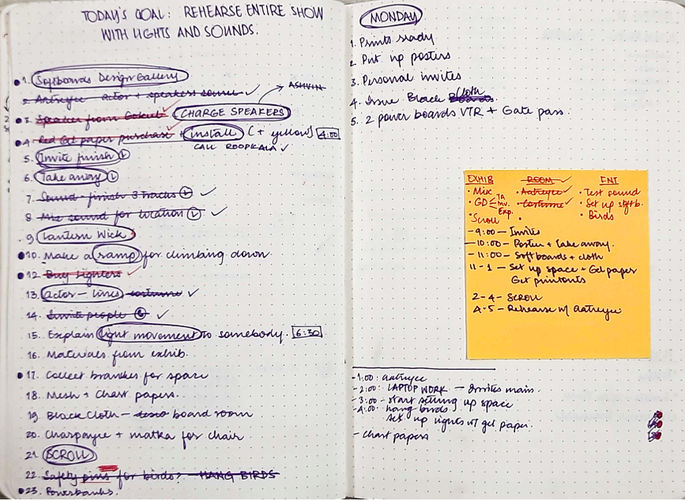 TODAY'S GOAL: REHEARSE ENTIRE SHOW
WITH LIGHTS AND SOUNDS.
1. Softboards Design Gallery
2. Aatreyee actor + speakers sound ✓ → ASHVIN
3. Speaker from Gokul ✓ CHARGE SPEAKERS
4. Red Gel paper purchase ✓ + install (+ yellow) 4:00
CALL ROOPKALA ✓
5. Invite finish
6. Take away
7. Sound - finish 3 Tracks ✓
8. Mix sound for location ✓
9. Lantern Wick
10. Make a ramp for climbing down.
12. Buy lighters ✓
13. actor - lines costume ✓
14. Invite people ✓
15. Explain light movement to somebody. 6:30
16. Materials from exhib.
17. Collect branches for space
18. Mesh + Chart papers.
19. Black Cloth - board room
20. Charpayee + matka for chair
21. SCROLL
22. Safety pins for birds? - HANG BIRDS
23. Powerbanks
MONDAY
1. Prints ready
2. Put up posters
3. Personal invites
4. Issue Black Cloth
5. 2 power boards VTR + Gate pass.
EXHIB ROOM ENT
• Mix • Aatreyee • Test sound
• GD TA Inv. Exp. • Costume • Set up softb.
• Scroll • • Birds
- 9:00 - Invites
- 10:00 - Poster + Take away.
- 11:00 - Softboards + cloth
11 - 1 - Set up space + Gel paper
Get printouts
2-4 - SCROLL
4-5 - Rehearse w/ Aatreyee
- 1:00: Aatreyee
- 2:00: LAPTOP WORK - Invites main.
- 3:00 - start setting up space
- 4:00: hang birds
set up lights w/ gel paper.
- Chart papers